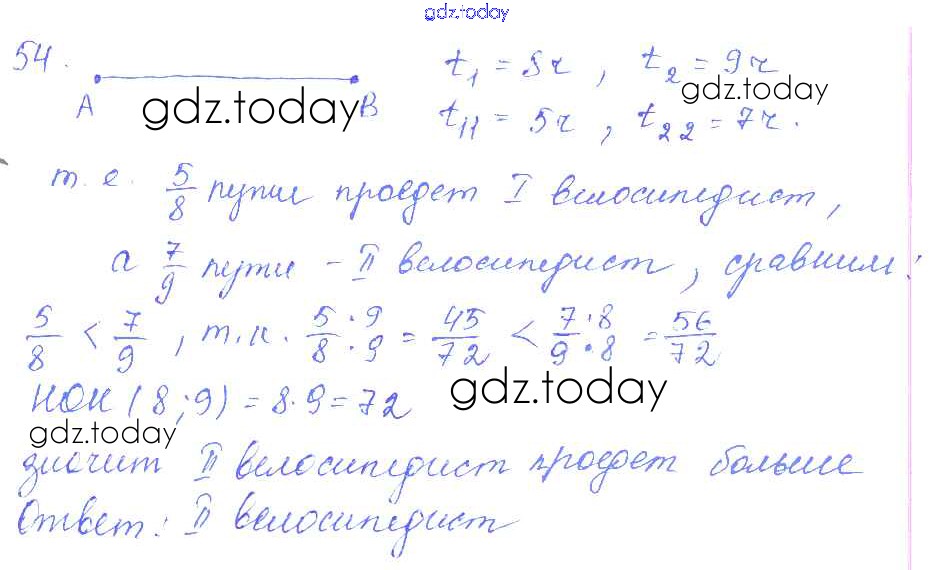 gdz.today
54.
A B t₁ = 8ч, t₂ = 9ч
gdz.today gdz.today
t₁₁ = 5ч, t₂₂ = 7ч.
т.е. 5/8 пути проедет I велосипедист,
а 7/9 пути – II велосипедист, сравним:
5/8 < 7/9, т.к. 5·9/8·9 = 45/72 < 7·8/9·8 = 56/72
НОК (8;9) = 8·9 = 72
gdz.today
gdz.today
значит II велосипедист проедет больше
Ответ: II велосипедист